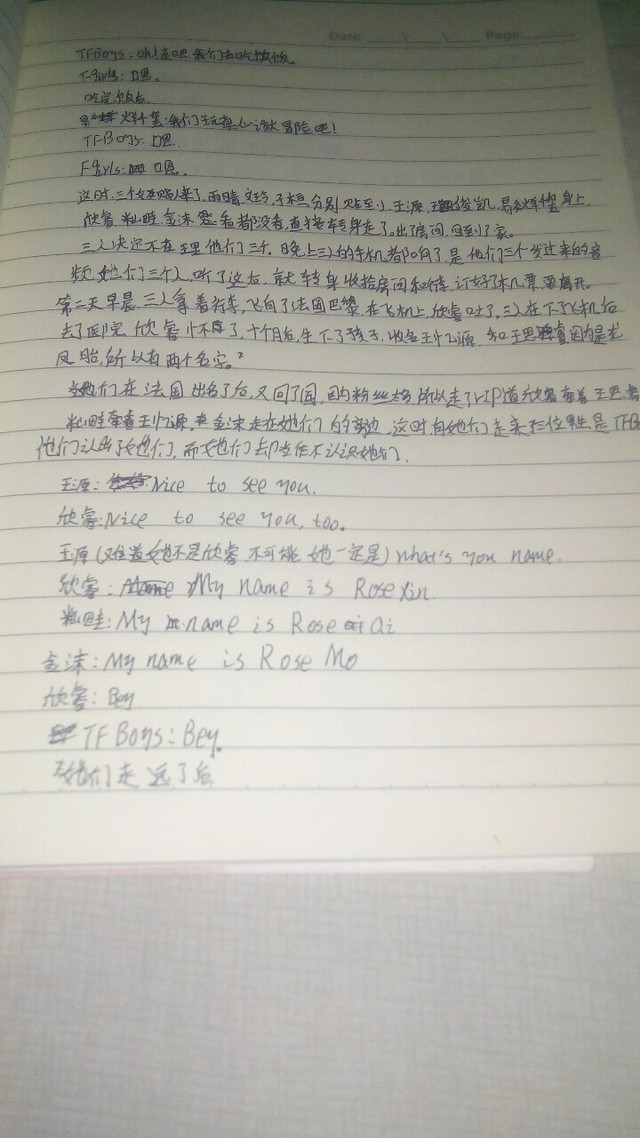 Date: Page:
TFBoys：oh！走吧 我们去吃饭饭。
Fgirls：口恩。
吃完饭后
火羊千玺：我们玩真心话大冒险吧！
TFBoys：口恩。
Fgirls：口恩。
这时，三个女人来了，雨晴 子想分别贴至小王源，王俊凯，易火羊千玺身上，
欣蓉 籼畦 金沫 看都没看，直接转身走了。出了房间，回到了家。
三人决定不在王里他们三个。晚上三人的手机者阝响了，是他们三个发过来的音
频 她们三个人 听了这后，就转身收拾房间和行李，订好了机票要离开。
第二天早晨 三人拿着行李，飞向了法国巴黎 在飞机上，欣蓉吐了，三人在下了飞机后
去了医院 欣蓉怀孕了，十个月后，生下了孩子，收名王忆源，和王思 因为是龙
凤胎，所以有两个名字。
她们在法国出名了后，又回了国，因为粉丝太多所以走了VIP道 欣蓉牵着王思
籼畦牵着王忆源，金沫走在她们的旁边 这时 向她们走来三位男生 是TFBo
他们认出了女也们，而女也们却当作不认识她们。
王源：Nice to see you.
欣蓉：Nice to see you, too.
王源（难道她不是欣蓉 不可能 她一定是）What's you name.
欣蓉：My name is Rose Xin
籼畦：My name is Rose Qi
金沫：My name is Rose Mo
欣蓉：Bey
TFBoys：Bey.
她们走远了后